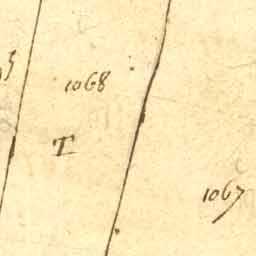 1068
T
1067